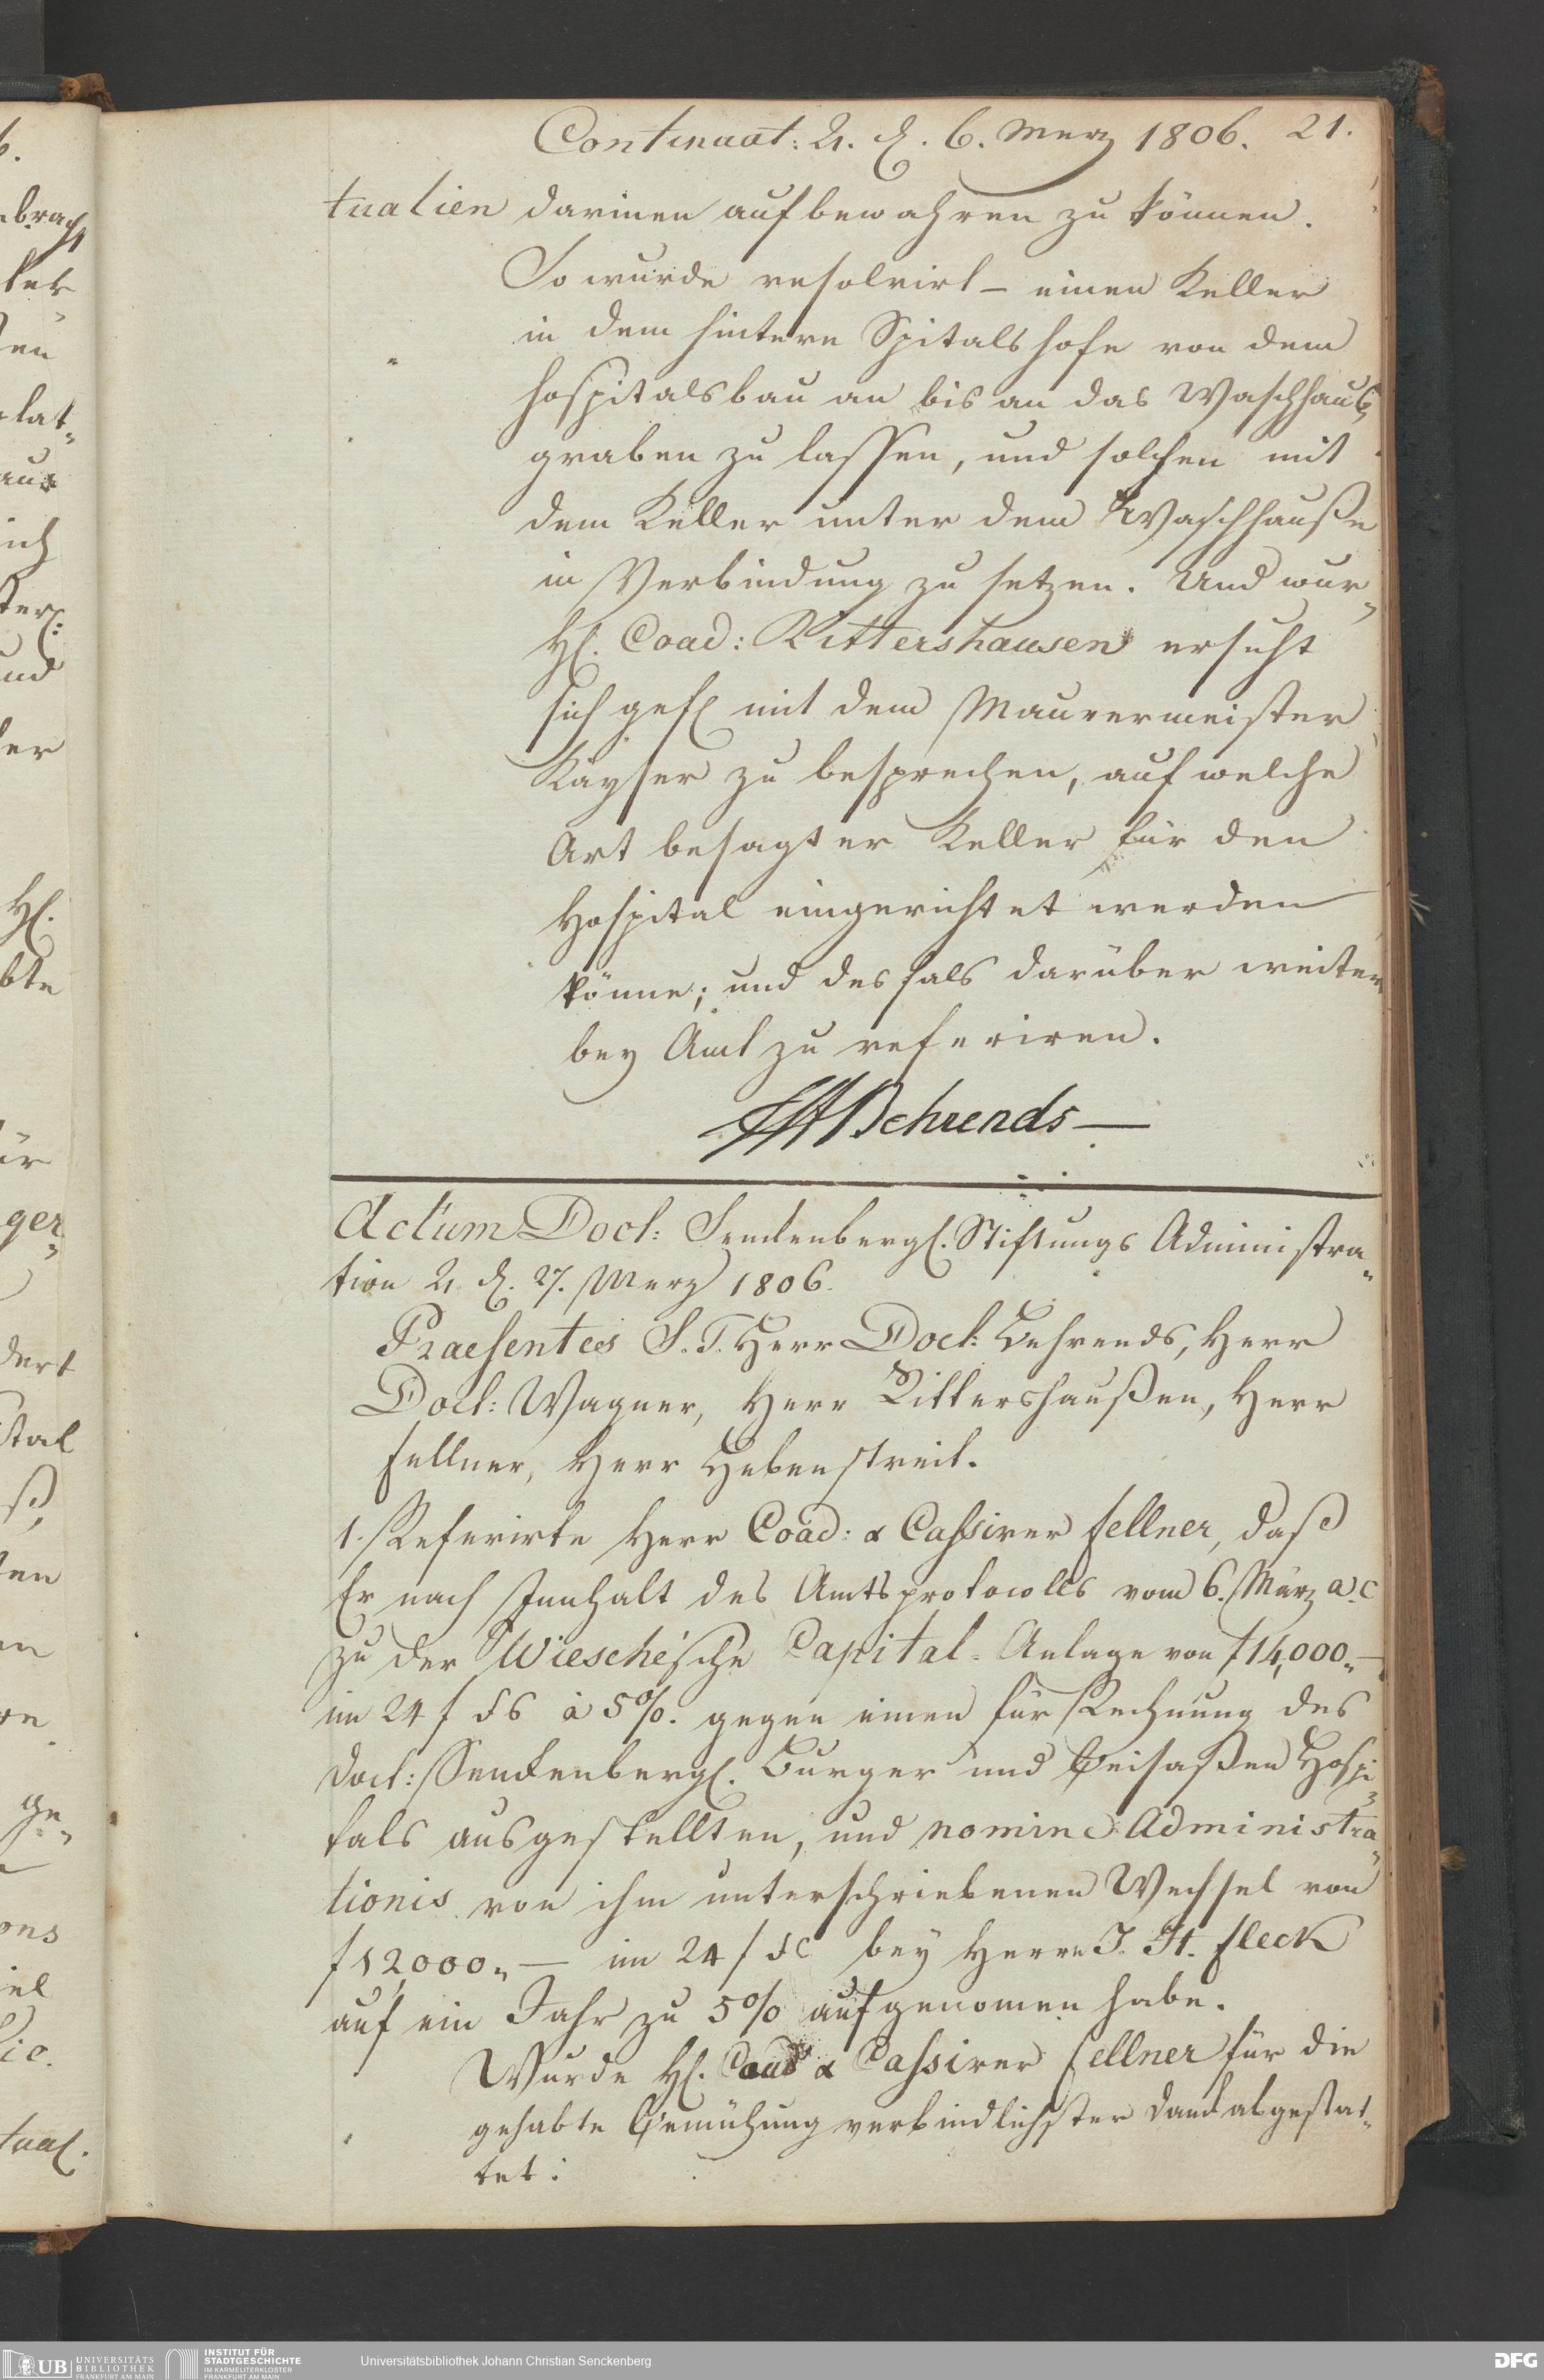 Continuat: 2. d. 6. Merz 1806. 21.
tualien darinen aufbewahren zu können.
So wurde resolvirt – einen Keller
in dem hintern Spitalshofe von dem
Hospitalsbau an bis an das Waschhauß
graben zu lassen, und solchen mit
dem Keller unter dem Waschhauße
in Verbindung zu setzen. Und wur„
H. Coad: Rittershausen ersucht
sich gef mit dem Maurermeister
Kayser zu besprechen, auf welche
Art besagter Keller für den
Hospital eingerichtet werden
könne; und desfals darüber weiter
bey Amt zu referiren.
Behrends
Actum Doct: Senckenberg. Stiftungs Administra„
tion 2. d. 27. Merz 1806.
Praesentes S. T. Herr Doct: Behrends, Herr
Doct: Wagner, Herr Rittershaußen, Herr
Fellner, Herr Hebenstreit.
1. Referirte Herr Coad: & Cassirer Fellner, daß
Er nach Innhalt des Amtsprotocolls vom 6. März a. c
zu der Wiesche'sche Capital-Anlage von f 14,000„ –
im 24 f fs à 5%. gegen einen für Rechnung des
Doct: Senckenberg. Burger und Beisaßen Hospi„
tals ausgestellten, und nomine Administra„
tionis von ihm unterschriebenen Wechsel von
f 12,000„ – im 24 f bey Herrn J. H. Fleck
auf ein Jahr zu 5% aufgenomen habe.
Wurde H. Coad & Cassirer Fellner für die
gehabte Bemühung verbindlichster Danck abgestat„
tet:
UB UNIVERSITÄTS BIBLIOTHEK FRANKFURT AM MAIN
INSTITUT FÜR STADTGESCHICHTE IM KARMELITERKLOSTER FRANKFURT AM MAIN
Universitätsbibliothek Johann Christian Senckenberg
DFG